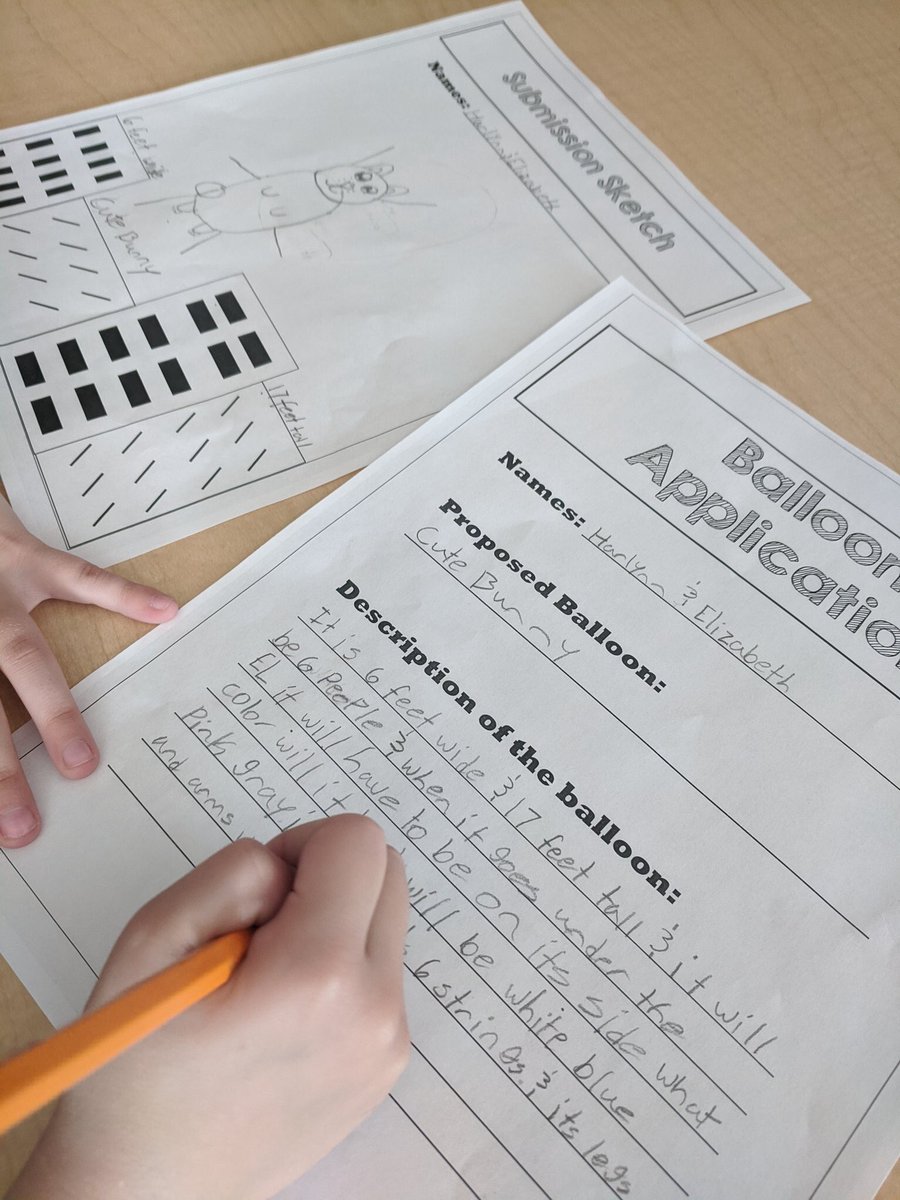 Submission Sketch
Names:
6 feet wide
Cute Bunny
17 feet tall
Balloon
Application
Names: Harlynn & Elizabeth
Proposed Balloon:
Cute Bunny
Description of the balloon:
It is 6 feet wide & 17 feet tall & it will
be 6 People & when it goes under the
EL it will have to be on its side what
color will it will be white blue
Pink gray 6 strings. & its legs
and arms